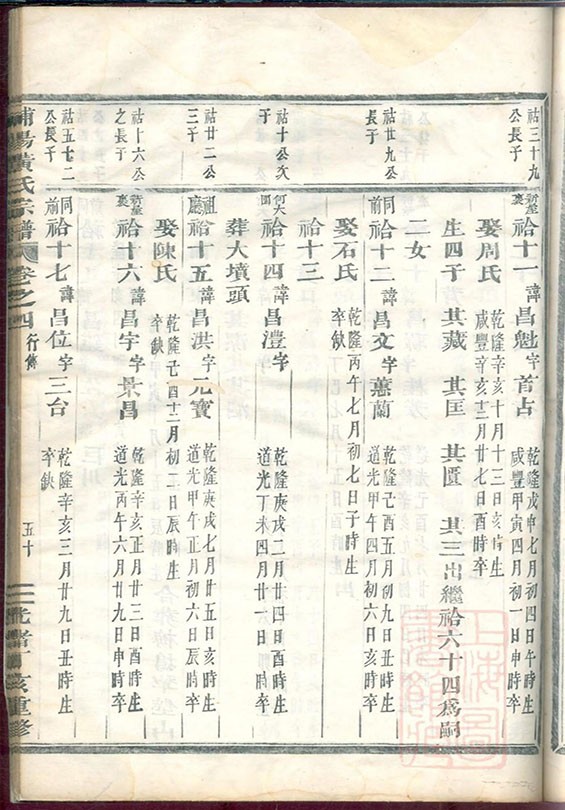 祜三十九公長子
新屋裏 祫十一 諱昌魁字首占 乾隆戊申七月初四日午時生 咸豐甲寅四月初一日申時卒
娶周氏 乾隆辛亥十月十三日亥時生 咸豐辛亥十二月廿七日酉時卒
生四子 其藏 其匡 其匱 其三出繼祫六十四爲嗣
二女
祜廿九公長子
同前 祫十二 諱昌文字蕙蘭 乾隆己酉五月初九日酉時生 道光甲午四月初六日亥時卒
娶石氏 乾隆丙午七月初七日子時生 卒缺
祫十三
祜十公次子
祫十四 諱昌澧字 乾隆庚戌二月廿四日酉時生 道光丁未四月廿六日亥時卒
葬大墳頭
祜廿二公三子
祖廳 祫十五 諱昌洪字元寶 乾隆庚戌七月廿五日亥時生 道光甲午正月初六日辰時卒
娶陳氏 乾隆己酉十二月初二日辰時生 卒缺
祜十六公之長子
新屋裏 祫十六 諱昌宇字景昌 乾隆辛亥正月廿三日酉時生 道光丙午六月廿九日申時卒
祜五七二公長子
同前 祫十七 諱昌位字三台 乾隆辛亥三月廿九日丑時生 卒缺
浦陽黃氏宗譜 卷之四 行傳 五十 亥重修